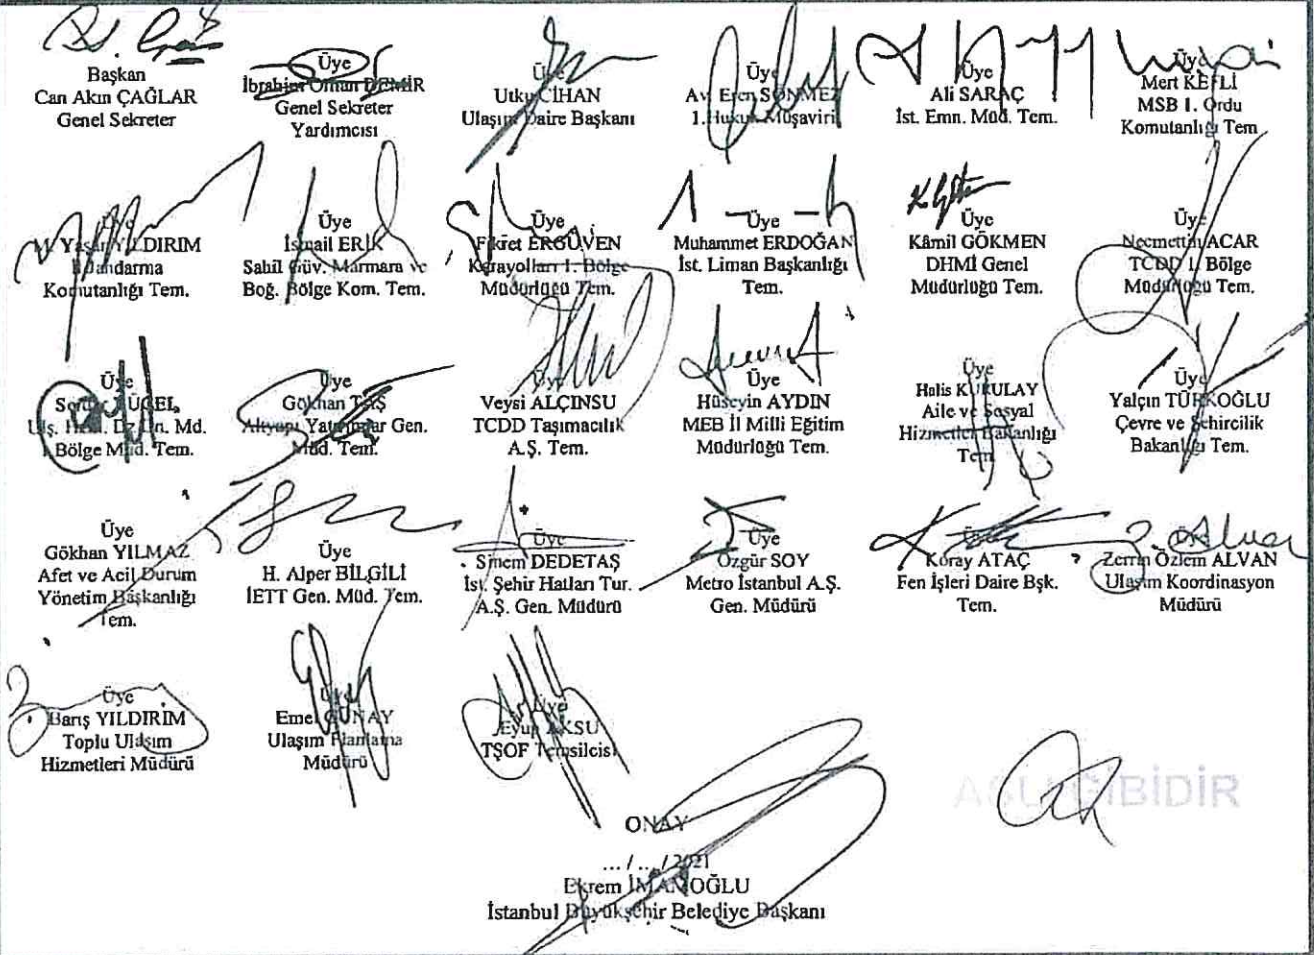 Başkan
Can Akın ÇAĞLAR
Genel Sekreter
Üye
İbrahim Orhan DEMİR
Genel Sekreter
Yardımcısı
Üye
Utku CİHAN
Ulaşım Daire Başkanı
Üye
Av. Eren SÖNMEZ
1.Hukuk Müşaviri
Üye
Ali SARAÇ
İst. Emn. Müd. Tem.
Üye
Mert KEFLİ
MSB 1. Ordu
Komutanlığı Tem
Üye
M. Yaşar YILDIRIM
Jandarma
Komutanlığı Tem.
Üye
İsmail ERİK
Sahil Güv. Marmara ve
Boğ. Bölge Kom. Tem.
Üye
Fikret ERGÜVEN
Karayolları 1. Bölge
Müdürlüğü Tem.
Üye
Muhammet ERDOĞAN
İst. Liman Başkanlığı
Tem.
Üye
Kâmil GÖKMEN
DHMİ Genel
Müdürlüğü Tem.
Üye
Necmettin ACAR
TCDD 1. Bölge
Müdürlüğü Tem.
Üye
Md.
Bölge Müd. Tem.
Üye
Gökhan TAŞ
Altyapı Yatırımlar Gen.
Müd. Tem.
Üye
Veysi ALÇINSU
TCDD Taşımacılık
A.Ş. Tem.
Üye
Hüseyin AYDIN
MEB İl Milli Eğitim
Müdürlüğü Tem.
Üye
Halis KURULAY
Aile ve Sosyal
Hizmetler Bakanlığı
Tem
Üye
Yalçın TÜRKOĞLU
Çevre ve Şehircilik
Bakanlığı Tem.
Üye
Gökhan YILMAZ
Afet ve Acil Durum
Yönetim Başkanlığı
Tem.
Üye
H. Alper BİLGİLİ
İETT Gen. Müd. Tem.
Üye
Sinem DEDETAŞ
İst. Şehir Hatları Tur.
A.Ş. Gen. Müdürü
Üye
Özgür SOY
Metro İstanbul A.Ş.
Gen. Müdürü
Üye
Koray ATAÇ
Fen İşleri Daire Bşk.
Tem.
Üye
Zerrin Özlem ALVAN
Ulaşım Koordinasyon
Müdürü
Üye
Barış YILDIRIM
Toplu Ulaşım
Hizmetleri Müdürü
Üye
Emel GÜNAY
Ulaşım Planlama
Müdürü
Üye
Eyüp AKSU
TŞOF Temsilcisi
ASLI GİBİDİR
ONAY
... / ... / 2021
Ekrem İMAMOĞLU
İstanbul Büyükşehir Belediye Başkanı